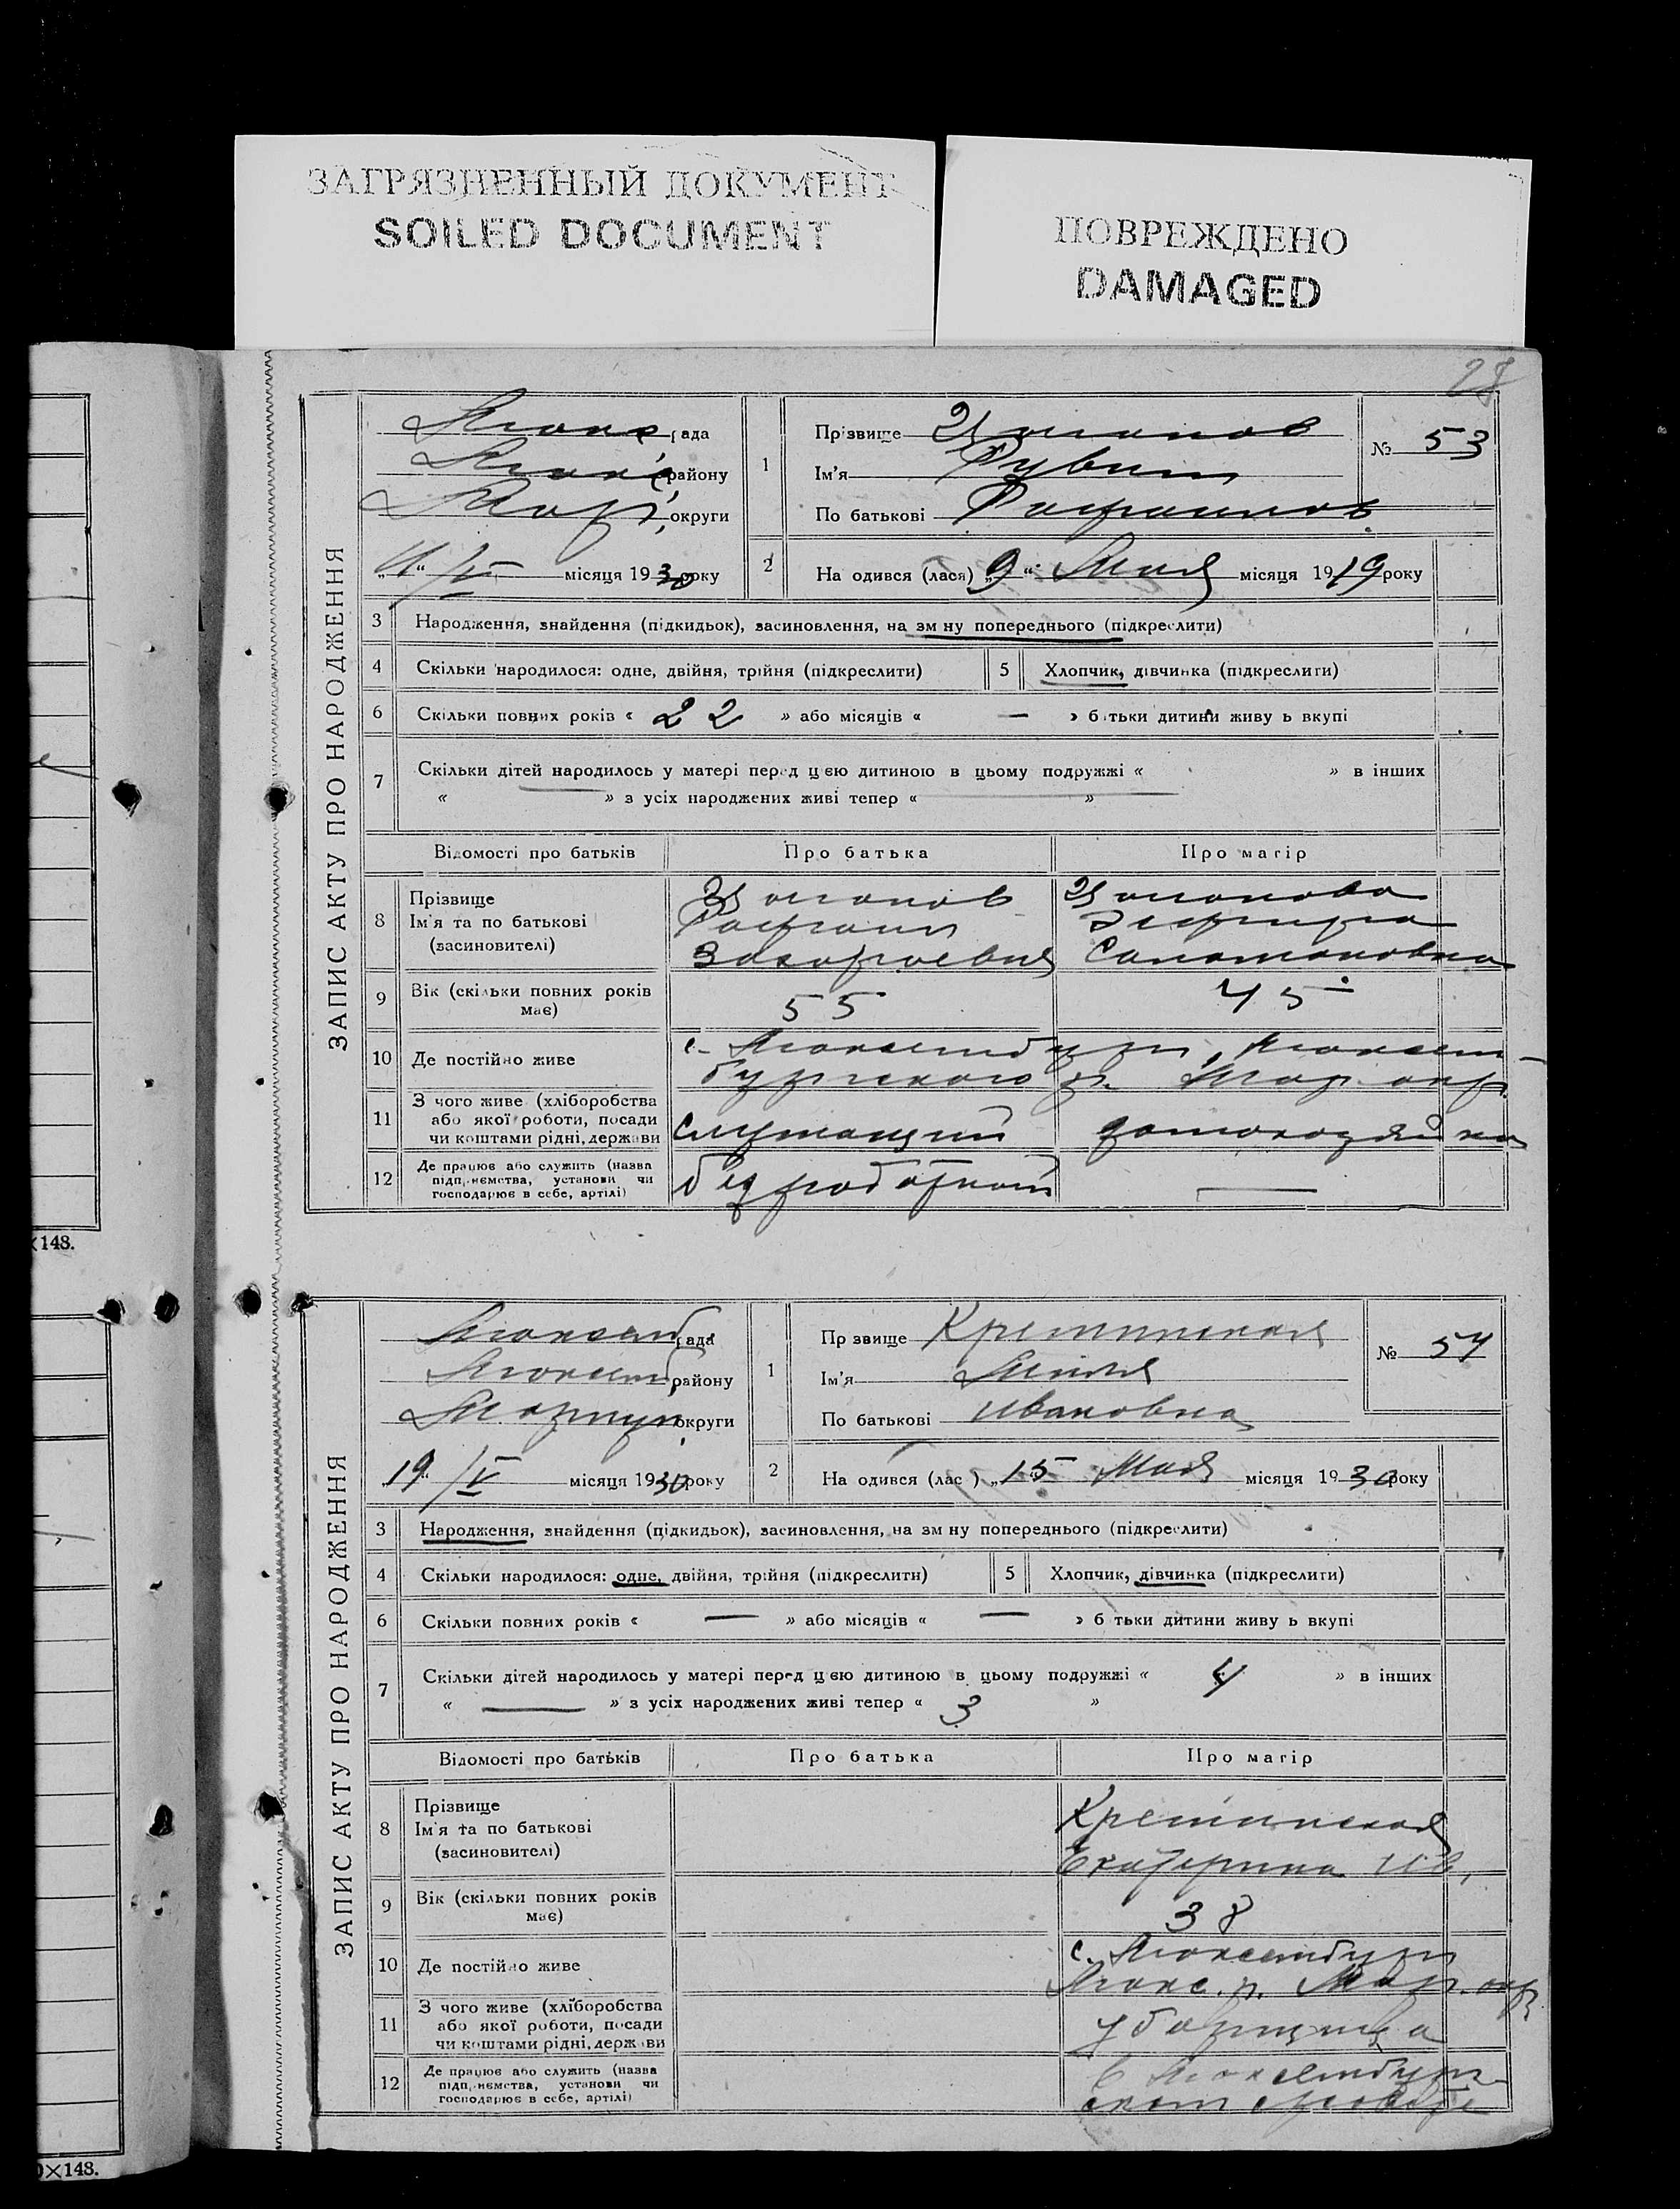 ЗАГРЯЗНЕННЫЙ ДОКУМЕНТ
SOILED DOCUMENT
ПОВРЕЖДЕНО
DAMAGED
28
ЗАПИС АКТУ ПРО НАРОДЖЕННЯ
Люкс. рада
Люкс. району
Мар. округи
місяця 1930 року
1
Прізвище
Ім'я Рувим
По батькові
№ 53
2
На одився (лася) „9“ Мая місяця 1919 року
3 Народження, знайдення (підкидьок), засиновлення, на зм ну попереднього (підкреслити)
4 Скільки народилося: одне, двійня, трійня (підкреслити) 5 Хлопчик, дівчинка (підкреслити)
6 Скільки повних років « 22 » або місяців « — » б тьки дитини живу ь вкупі
7 Скільки дітей народилось у матері перед цією дитиною в цьому подружжі « » в інших
« » з усіх народжених живі тепер « »
Відомості про батьків Про батька Про матір
8 Прізвище
Ім'я та по батькові
(засиновителі)
Захарьевич
Эсфирь
Соломоновна
9 Вік (скільки повних років має) 55 45
10 Де постійно живе с. Люксембург, Люксем-
бургского р. Мар. окр.
11 З чого живе (хліборобства або якої роботи, посади чи коштами рідні, держави служащий домохозяйка
12 Де працює або служить (назва підприємства, установи чи господарює в себе, артілі) безработный —
ЗАПИС АКТУ ПРО НАРОДЖЕННЯ
Люксемб. рада
Люксемб. району
Мариуп. округи
19/V місяця 1930 року
1
Пр звище Креминская
Ім'я
По батькові Ивановна
№ 54
2
На одився (лас ) „15 Мая місяця 1930 року
3 Народження, знайдення (підкидьок), засиновлення, на зм ну попереднього (підкреслити)
4 Скільки народилося: одне, двійня, трійня (підкреслити) 5 Хлопчик, дівчинка (підкреслити)
6 Скільки повних років « — » або місяців « — » б тьки дитини живу ь вкупі
7 Скільки дітей народилось у матері перед цією дитиною в цьому подружжі « 4 » в інших
« — » з усіх народжених живі тепер « 3 »
Відомості про батьків Про батька Про матір
8 Прізвище
Ім'я та по батькові
(засиновителі)
Креминская
Екатерина Ив.
9 Вік (скільки повних років має) 38
10 Де постійно живе с. Люксембург
Люкс. р. Мар. окр.
11 З чого живе (хліборобства або якої роботи, посади чи коштами рідні, держави уборщица
12 Де працює або служить (назва підприємства, установи чи господарює в себе, артілі) в Люксембург-
ском
×148.
×148.